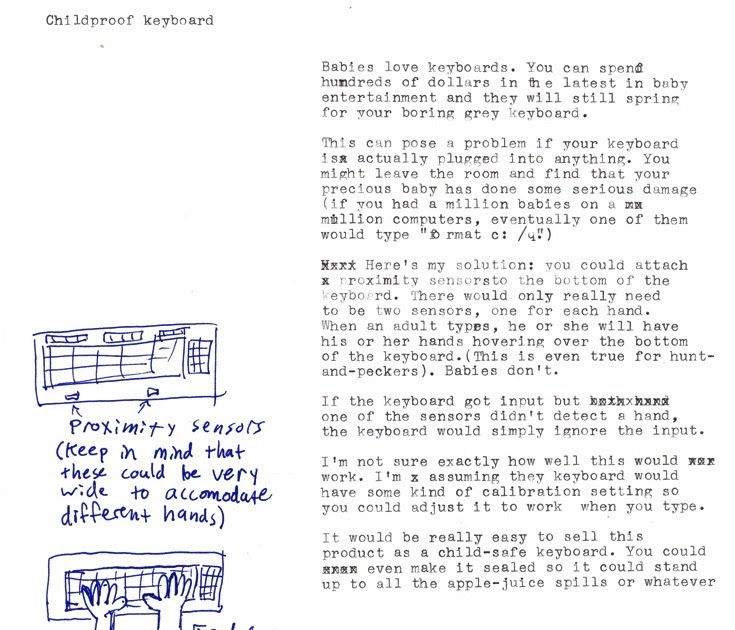 Childproof keyboard
Babies love keyboards. You can spend
hundreds of dollars in the latest in baby
entertainment and they will still spring
for your boring grey keyboard.
This can pose a problem if your keyboard
is actually plugged into anything. You
might leave the room and find that your
precious baby has done some serious damage
(if you had a million babies on a
million computers, eventually one of them
would type "format c: /q".)
Here's my solution: you could attach
proximity sensorsto the bottom of the
keyboard. There would only really need
to be two sensors, one for each hand.
When an adult types, he or she will have
his or her hands hovering over the bottom
of the keyboard.(This is even true for hunt-
and-peckers). Babies don't.
If the keyboard got input but
one of the sensors didn't detect a hand,
the keyboard would simply ignore the input.
I'm not sure exactly how well this would
work. I'm assuming they keyboard would
have some kind of calibration setting so
you could adjust it to work when you type.
It would be really easy to sell this
product as a child-safe keyboard. You could
even make it sealed so it could stand
up to all the apple-juice spills or whatever
Proximity sensors
(Keep in mind that
these could be very
wide to accomodate
different hands)